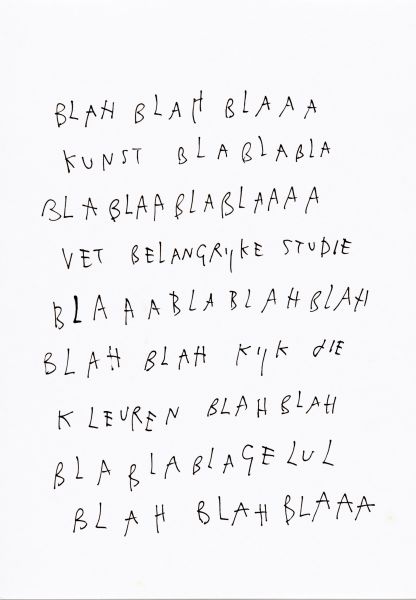 BLAH BLAH BLAAA
KUNST BLABLABLA
BLABLAABLABLAAAA
VET BELANGRIJKE STUDIE
BLAAABLABLAHBLAH
BLAH BLAH KIJK DIE
KLEUREN BLAHBLAH
BLABLABLAGELUL
BLAH BLAHBLAAA